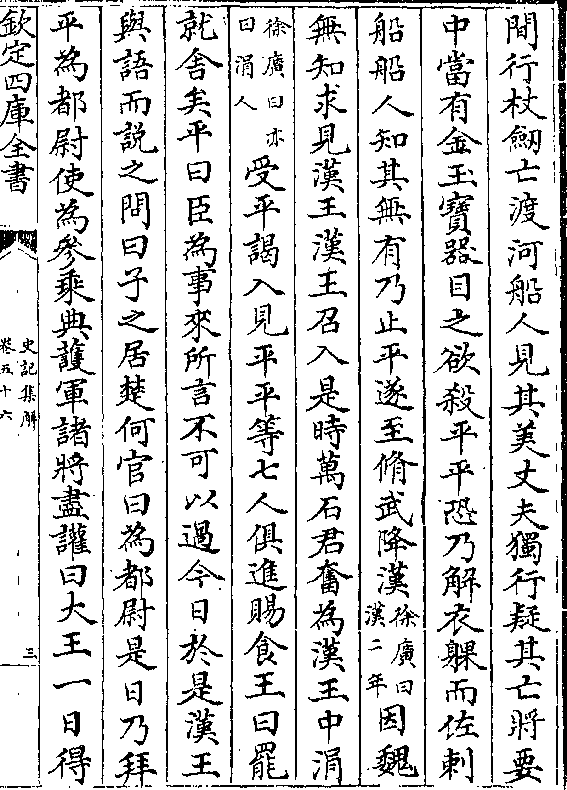 間行杖劒亡渡河船人見其美丈夫獨行疑其亡將要
中當有金玉寶器目之欲殺平平恐乃解衣躶而佐刺
船船人知其無有乃止平遂至脩武降漢徐廣曰漢二年因魏
無知求見漢王漢王召入是時萬石君奮為漢王中涓
徐廣曰亦曰涓人受平謁入見平平等七人俱進賜食王曰罷
就舍矣平曰臣為事來所言不可以過今日於是漢王
與語而説之問曰子之居楚何官曰為都尉是日乃拜
平為都尉使為參乘典護軍諸將盡讙曰大王一日得
欽定四庫全書
史記集解
卷五十六
三